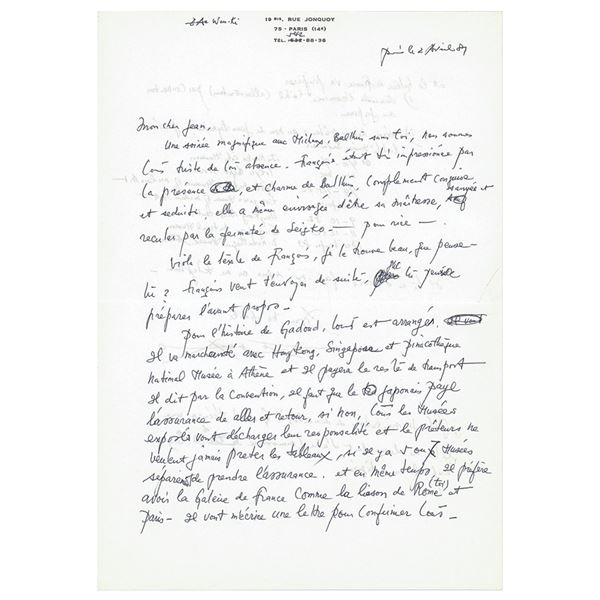 ZAO Wou-Ki
19 BIS, RUE JONQUOY
75 - PARIS (14e)
542
TÉL. -88-36
Paris le 2 Avril 89
Mon cher Jean,
Une soirée magnifique aux Michaux, Balthus sans toi, nous sommes
tous triste de ton absence. Françoise était très impressionée par
la présence, et charme de balthus, complement conquise,
et seduite. elle a même envisagée d'être sa maîtresse,
reculer par la fermeté de Setsuko — pour rire —
Voila le texte de François, je le trouve beau, que pense-
tu ? François veut t'envoyer de suite, que tu puisse
préparer l'avant propos -
Pour l'histoire de Gadoud, tout est arrangé.
Il va marchandé avec HongKong, Singapore et pinacothèque
National Musée à Athène et il payera le reste de transport
Il dit par la Convention, il faut que le japonais paye
l'assurance de aller et retour, si non, tous les Musées
exposés vont décharger leur responsalité et le prêteurs ne
veulent jamais preter les tableaux, si il y a 5 ou 7 Musées
séparés de prendre l'assurance. et en même temps, il préfère
avoir la Galerie de france comme la liaison de Rome (toi) et
Paris - Il vont m'écrire une lettre pour confirmer tous -